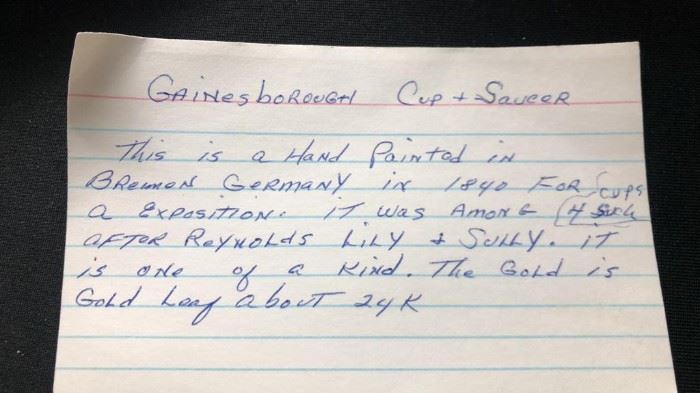 GAINESBOROUGH CUP + SAUCER
This is a Hand Painted in
BRemen GERMANY in 1840 FOR cups
a EXPOSITION. IT was AMONG 4 such
AFTER REYNOLDS LILY & SULLY. IT
is ONE of a Kind. The GOLD is
GOLD Leaf about 24K